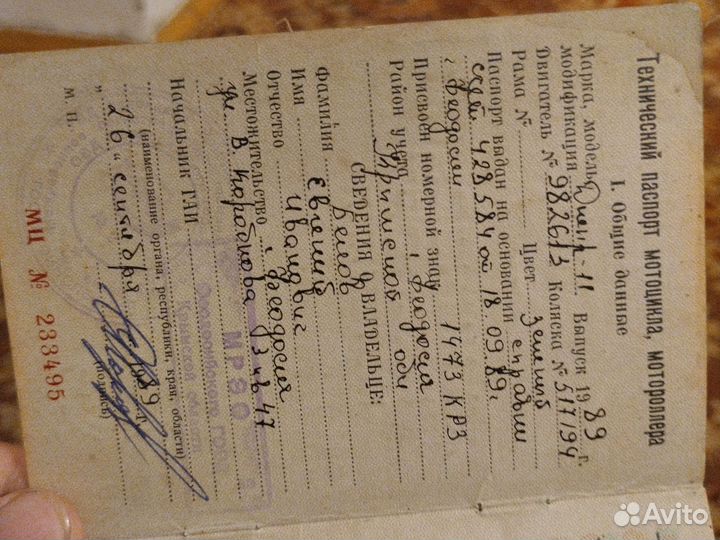 Технический паспорт мотоцикла, мотороллера
I. Общие данные
Марка, модель, Днепр-11 Выпуск 1989 г.
модификация
Двигатель № 982613 Коляска № 517194
Рама № Цвет зеленый
Паспорт выдан на основании справки
счет 428584 от 18.09.89г
г. Феодосии
Присвоен номерной знак 1473 КРЗ
Район учета г. Феодосия
Крымской обл
СВЕДЕНИЯ О ВЛАДЕЛЬЦЕ:
Фамилия Белов
Имя Евгений
Отчество Иванович
Местожительство г. Феодосия
ул. В. Коробкова 13 кв 47
МРЭО
Феодосийского
Крымской области
Начальник ГАИ
(наименование органа, республики, края, области)
„26" сентября 1989 г.
(подпись)
М. П.
МЦ № 233495
Avito